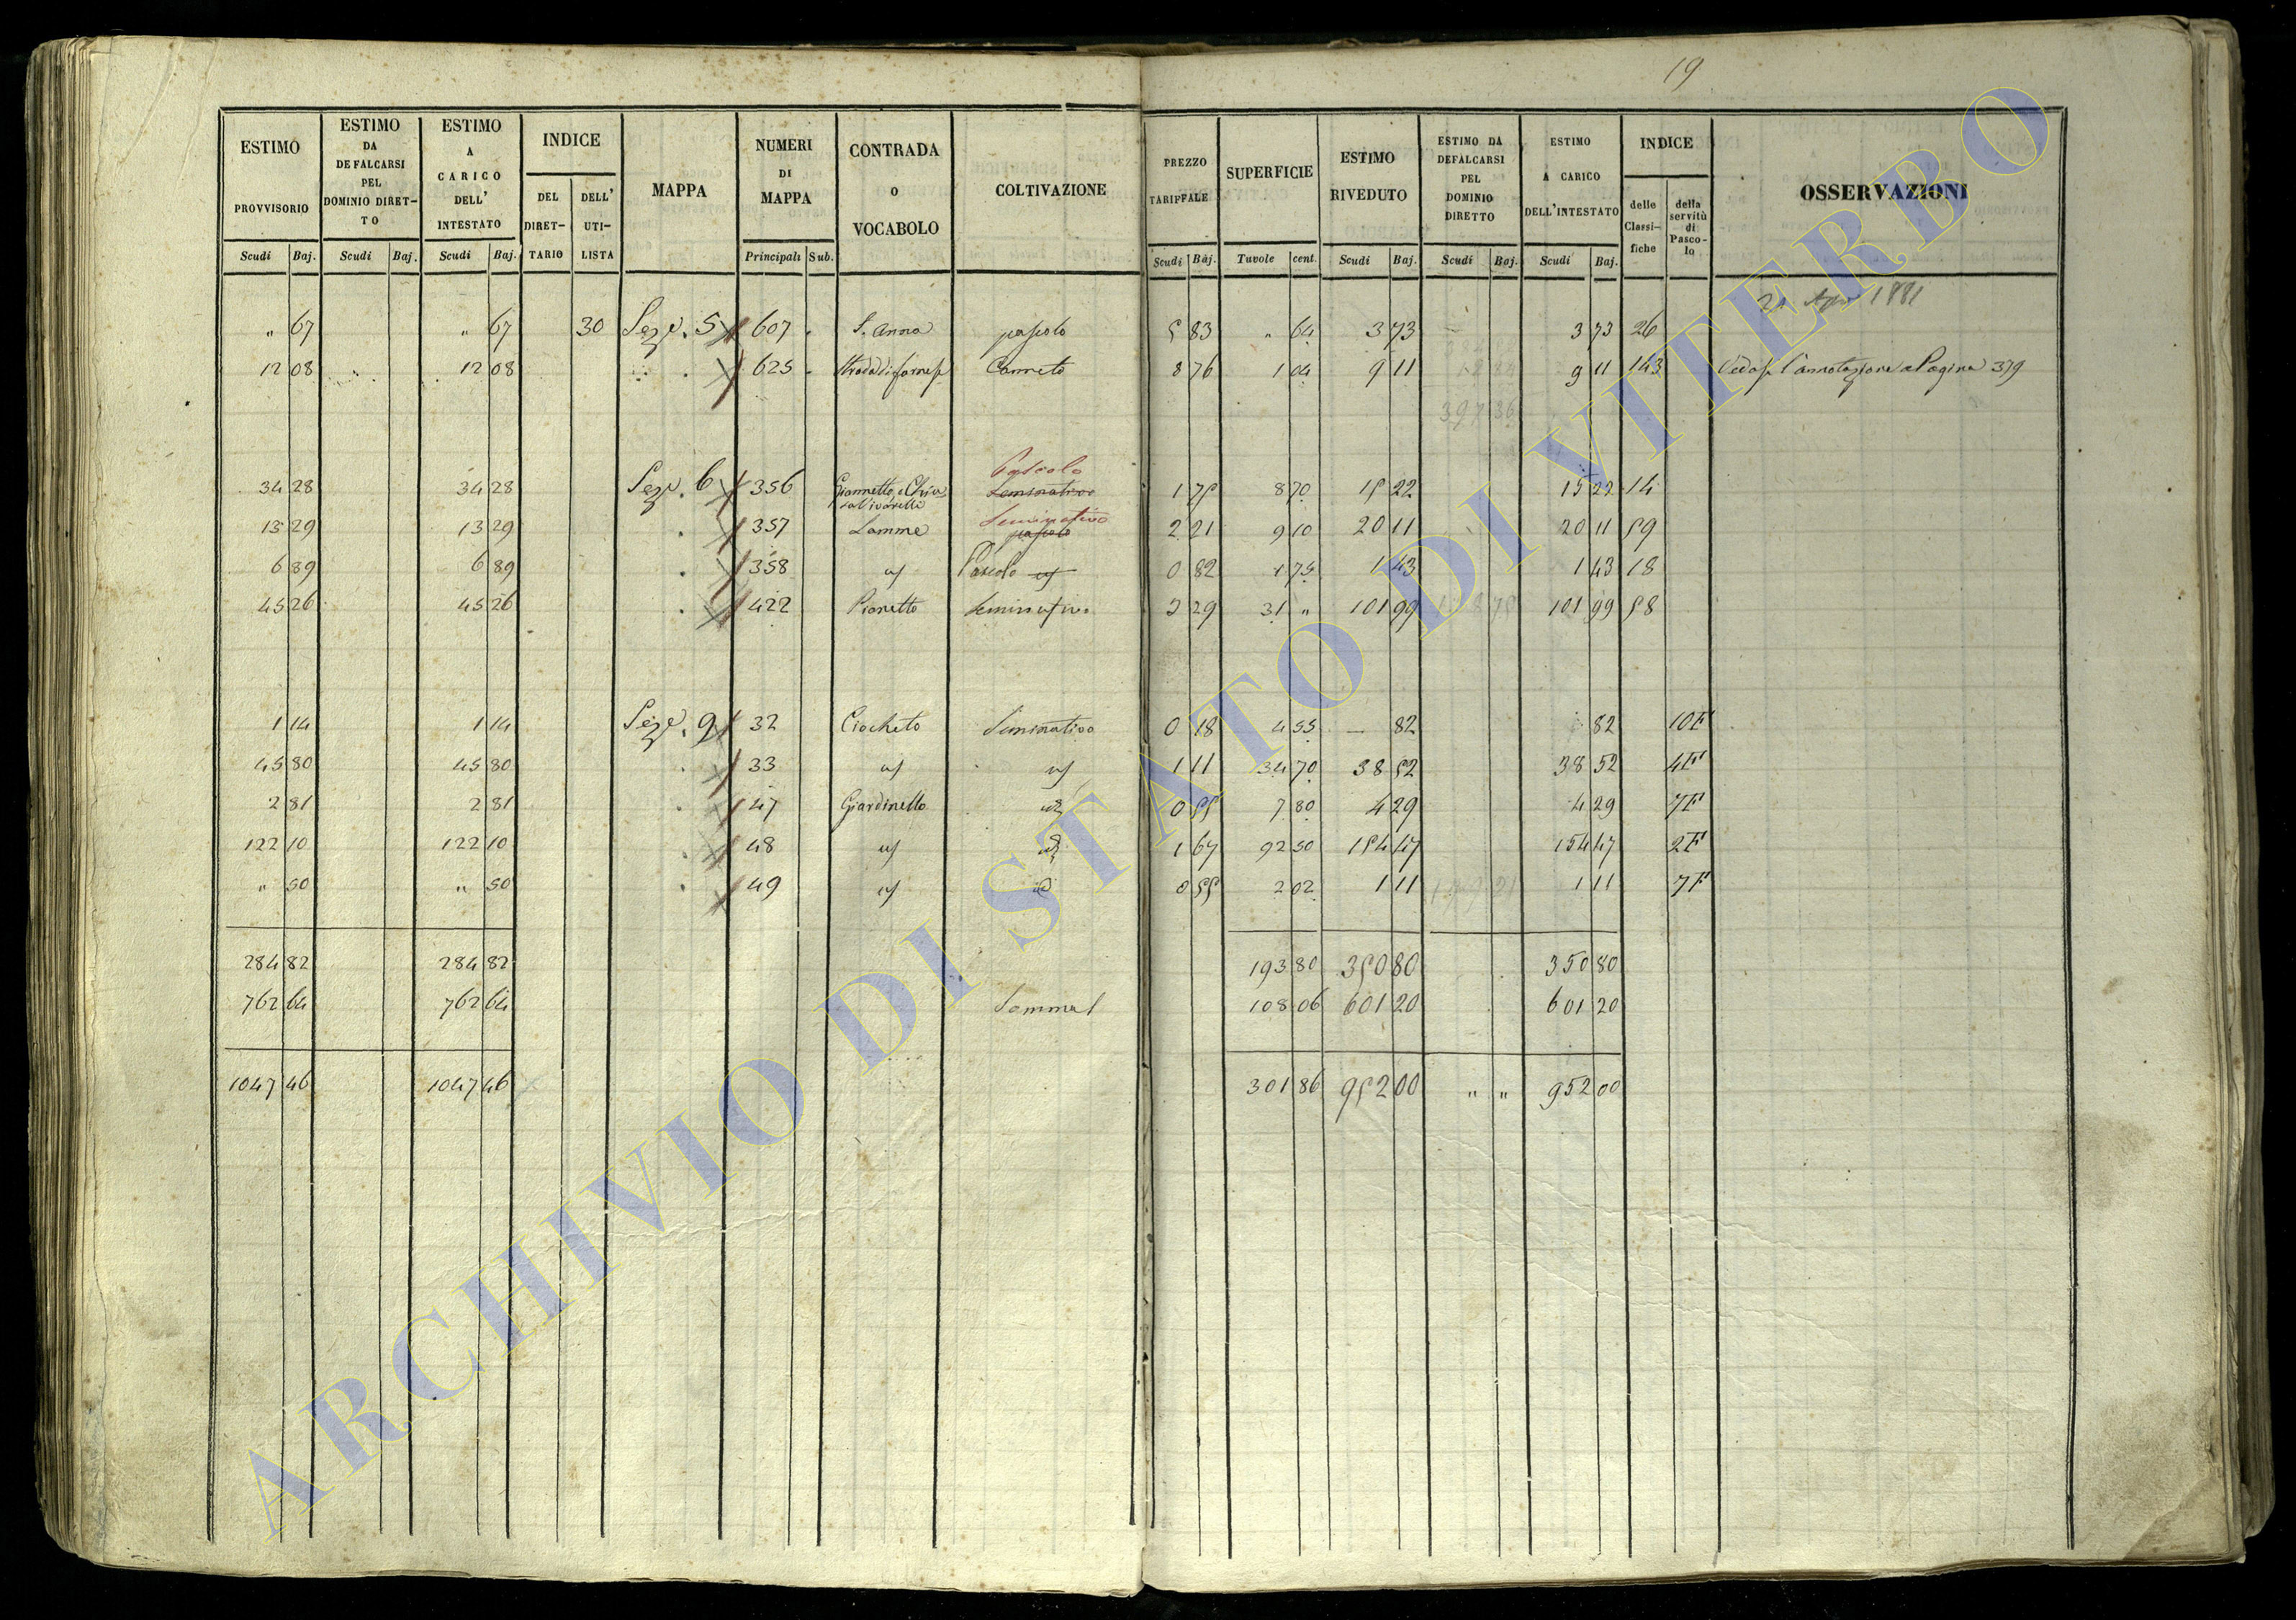 19
ESTIMO PROVVISORIO Scudi Baj. | ESTIMO DA DEFALCARSI PEL DOMINIO DIRET-TO Scudi Baj. | ESTIMO A CARICO DELL' INTESTATO Scudi Baj. | INDICE DEL DIRET-TARIO DELL' UTI-LISTA | MAPPA | NUMERI DI MAPPA Principali Sub. | CONTRADA O VOCABOLO | COLTIVAZIONE | PREZZO TARIFFALE Scudi Baj. | SUPERFICIE Tavole cent. | ESTIMO RIVEDUTO Scudi Baj. | ESTIMO DA DEFALCARSI PEL DOMINIO DIRETTO Scudi Baj. | ESTIMO A CARICO DELL'INTESTATO Scudi Baj. | INDICE delle Classi-fiche della servitù di Pasco-lo | OSSERVAZIONI
1881
" 67 " 67 30 Seze. 5 607 S. Anna pascolo 5 83 " 64 3 73 3 73 26
12 08 12 08 625 Strada di farnese Canneto 8 76 1 04 9 11 9 11 143 Vedasi l'annotazione a Pagina 379
397 36
Pascolo
34 28 34 28 Seze. 6 356 Giannetto, e Seminativo 1 75 8 70 15 22 15 22 14
Seminativo
13 29 13 29 357 Lamme pascolo 2 21 9 10 20 11 20 11 59
6 89 6 89 358 Pascolo 0 82 1 75 1 43 1 43 18
45 26 45 26 422 Pianetto Seminativo 3 29 31 " 101 99 101 99 58
1 14 1 14 Seze. 9 32 Ciocheto Seminativo 0 18 4 55 — 82 82 10F
45 80 45 80 33 1 11 34 70 38 52 38 52 4F
2 81 2 81 47 Giardinetto 0 55 7 80 4 29 4 29 7F
122 10 122 10 48 1 67 92 50 154 47 154 47 2F
" 50 " 50 49 0 55 2 02 1 11 1 11 7F
284 82 284 82 193 80 350 80 350 80
762 64 762 64 Somma 108 06 601 20 601 20
1047 46 1047 46 301 86 952 00 " " 952 00
ARCHIVIO DI STATO DI VITERBO